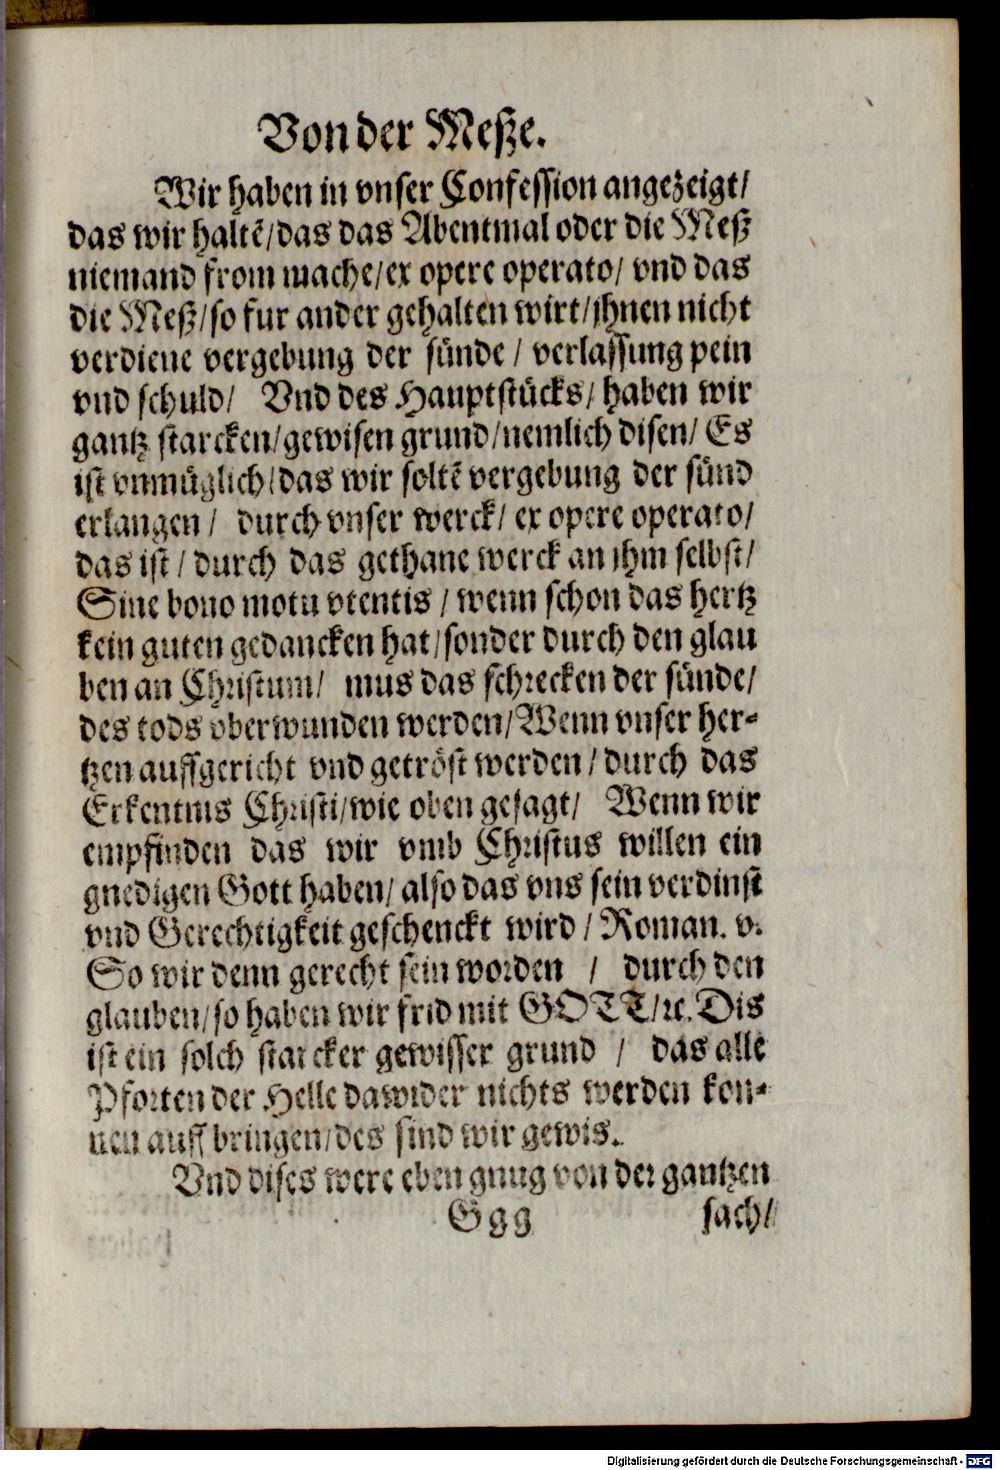 Von der Meße.
Wir haben in vnser Confession angezeigt/
das wir haltẽ/das das Abentmal oder die Meß
niemand from mache/ex opere operato/ vnd das
die Meß/so fur ander gehalten wirt/jhnen nicht
verdiene vergebung der sünde / verlassung pein
vnd schuld/ Vnd des Hauptstücks/ haben wir
gantz starcken/gewisen grund/nemlich disen/ Es
ist vnmüglich/das wir soltẽ vergebung der sünd
erlangen / durch vnser werck/ ex opere operato/
das ist / durch das gethane werck an jhm selbst/
Sine bono motu vtentis / wenn schon das hertz
kein guten gedancken hat/sonder durch den glau
ben an Christum/ mus das schrecken der sünde/
des tods vberwunden werden/Wenn vnser her-
tzen auffgericht vnd getröst werden / durch das
Erkentnis Christi/wie oben gesagt/ Wenn wir
empfinden das wir vmb Christus willen ein
gnedigen Gott haben/ also das vns sein verdinst
vnd Gerechtigkeit geschenckt wird / Roman. v.
So wir denn gerecht sein worden / durch den
glauben/so haben wir frid mit GOTT/ꝛc. Dis
ist ein solch starcker gewisser grund / das alle
Pforten der Helle dawider nichts werden kon-
nen auff bringen/des sind wir gewis.
Vnd dises were eben gnug von der gantzen
Ggg sach/
Digitalisierung gefördert durch die Deutsche Forschungsgemeinschaft - DFG